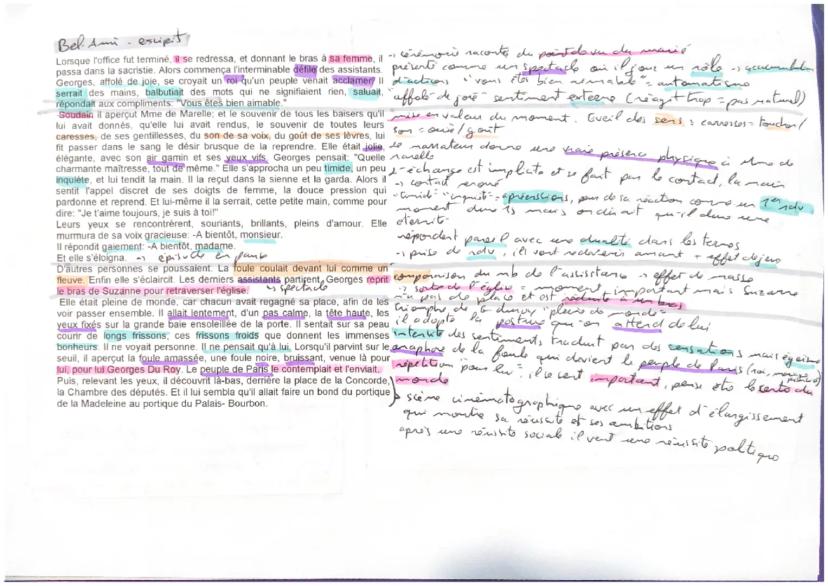 Bel Ami - excipit
Lorsque l'office fut terminé, il se redressa, et donnant le bras à sa femme, il
passa dans la sacristie. Alors commença l'interminable défilé des assistants.
Georges, affolé de joie, se croyait un roi qu'un peuple venait acclamer. Il
serrait des mains, balbutiait des mots qui ne signifiaient rien, saluait,
répondait aux compliments: "Vous êtes bien aimable."
Soudain il aperçut Mme de Marelle; et le souvenir de tous les baisers qu'il
lui avait donnés, qu'elle lui avait rendus, le souvenir de toutes leurs
caresses, de ses gentillesses, du son de sa voix, du goût de ses lèvres, lui
fit passer dans le sang le désir brusque de la reprendre. Elle était jolie,
élégante, avec son air gamin et ses yeux vifs. Georges pensait: "Quelle
charmante maîtresse, tout de même." Elle s'approcha un peu timide, un peu
inquiète, et lui tendit la main. Il la reçut dans la sienne et la garda. Alors il
sentit l'appel discret de ses doigts de femme, la douce pression qui
pardonne et reprend. Et lui-même il la serrait, cette petite main, comme pour
dire: "Je t'aime toujours, je suis à toi!"
Leurs yeux se rencontrèrent, souriants, brillants, pleins d'amour. Elle
murmura de sa voix gracieuse: -A bientôt, monsieur.
Il répondit gaiement: -A bientôt, madame.
Et elle s'éloigna. → épisode en pause
D'autres personnes se poussaient. La foule coulait devant lui comme un
fleuve. Enfin elle s'éclaircit. Les derniers assistants partirent. Georges reprit
le bras de Suzanne pour retraverser l'église. → spectacle
Elle était pleine de monde, car chacun avait regagné sa place, afin de les
voir passer ensemble. Il allait lentement, d'un pas calme, la tête haute, les
yeux fixés sur la grande baie ensoleillée de la porte. Il sentait sur sa peau
courir de longs frissons, ces frissons froids que donnent les immenses
bonheurs. Il ne voyait personne. Il ne pensait qu'à lui. Lorsqu'il parvint sur le
seuil, il aperçut la foule amassée, une foule noire, bruissant, venue là pour
lui, pour lui Georges Du Roy. Le peuple de Paris le contemplait et l'enviait.
Puis, relevant les yeux, il découvrit là-bas, derrière la place de la Concorde,
la Chambre des députés. Et il lui sembla qu'il allait faire un bond du portique
de la Madeleine au portique du Palais- Bourbon.
→ cérémonie raconté du point de vu du marié
présenté comme un spectacle où il joue un rôle → accumulation
d'actions "vous êtes bien aimable" = automatisme
"affolé de joie" sentiment extreme (réagit trop = pas naturel)
mise en valeur du moment. Eveil des sens : caresses = toucher/
son = ouïe / goût
le narrateur donne une vraie présence physique à Mme de
Marelle
l'échange est implicite et se fait par le contact, la main
→ contact
"timide" "inquiète" = apréensions, peur de sa réaction comme un 1er rdv
moment dure 15 mais on dirait qu'il dure une
éternité
répondent pareil avec une dualité dans les termes
→ prise de rdv, ils vont redevenir amant + effet de jeu
comparaison du nb de l'assistance → effet de masse
→ sortie de l'église = moment important mais Suzanne
n'a pas de place et est réduite à un bras
triomphe de G duroy "pleine de monde"
il adopte la posture qu'on attend de lui
intensité des sentiments traduit par des sensations mais égoïsme
anaphore de la foule qui devient le peuple de Paris (roi,
répétition "pour lui" = il se sent important, pense être le centre du
monde
→ scène cinématographique avec un effet d'élargissement
qui montre sa réussite et ses ambitions
après une réussite sociale il veut une réussite politique